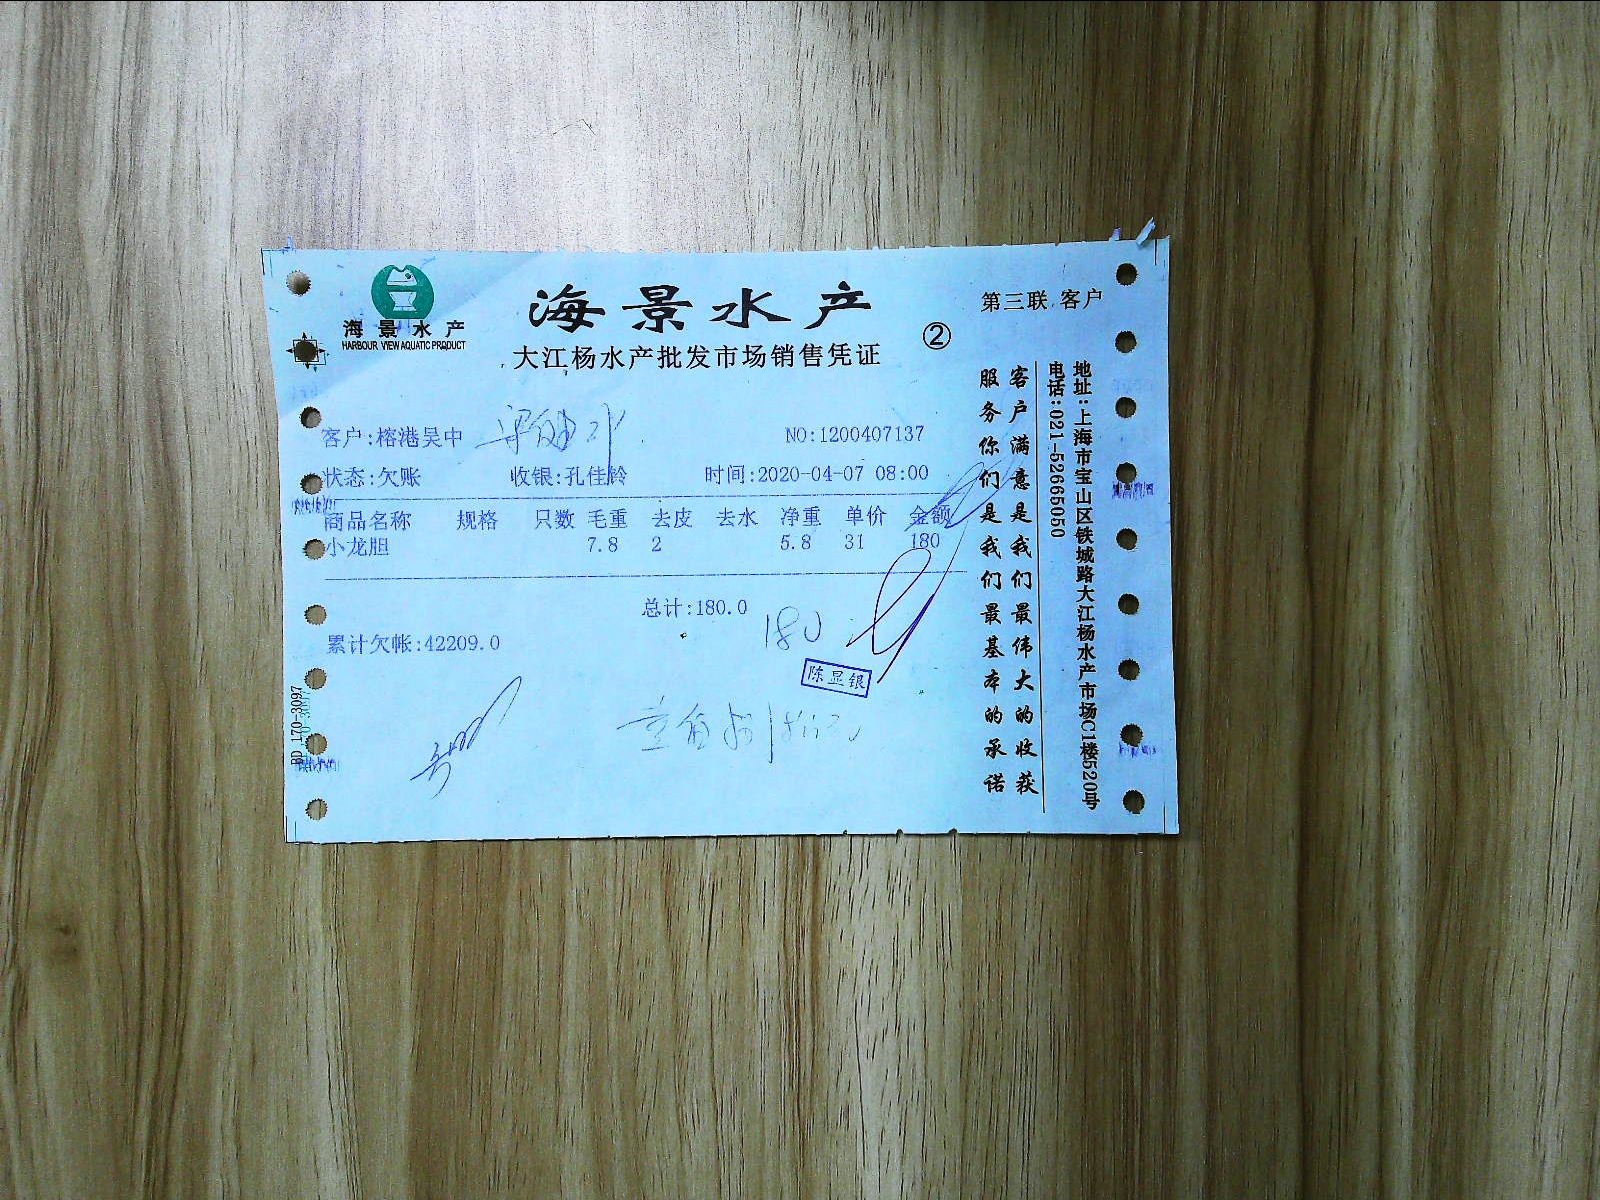 海景水产
HARBOUR VIEW AQUATIC PRODUCT
海景水产
大江杨水产批发市场销售凭证
②
第三联 客户
客户:榕港吴中
NO:1200407137
状态:欠账 收银:孔佳铃 时间:2020-04-07 08:00
商品名称 规格 只数 毛重 去皮 去水 净重 单价 金额
小龙胆 7.8 2 5.8 31 180
总计:180.0
180
累计欠帐:42209.0
陈显银
BD 170-3097
客户满意是我们最伟大的收获
服务你们是我们最基本的承诺
地址:上海市宝山区铁城路大江杨水产市场C1楼520号
电话:021-52665050